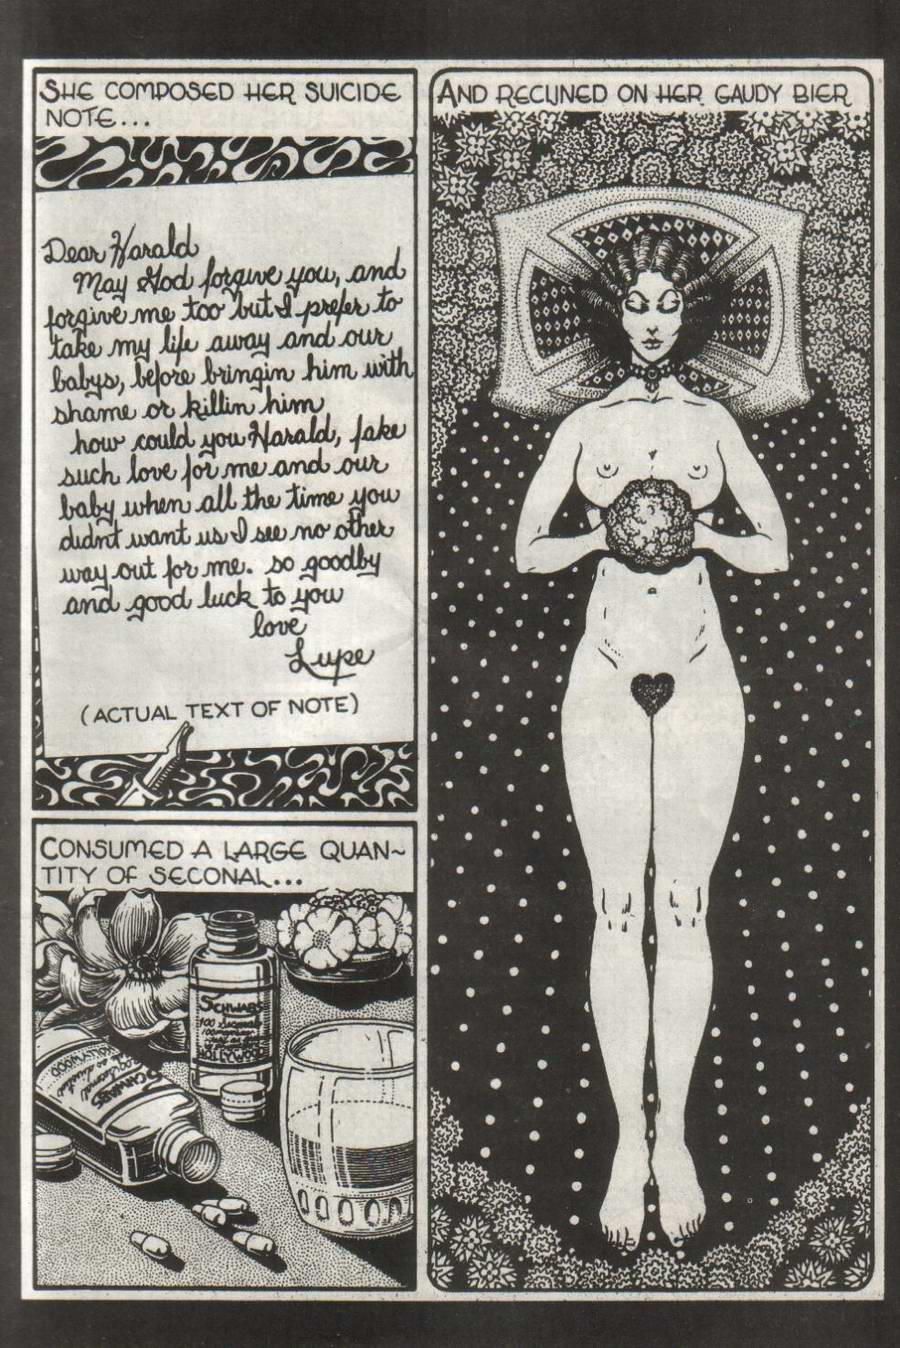 SHE COMPOSED HER SUICIDE
NOTE...
Dear Harald
May God forgive you, and
forgive me too but I prefer to
take my life away and our
babys, before bringin him with
shame or killin him
how could you Harald, fake
such love for me and our
baby when all the time you
didnt want us I see no other
way out for me. so goodby
and good luck to you
love
Lupe
(ACTUAL TEXT OF NOTE)
CONSUMED A LARGE QUAN~
TITY OF SECONAL...
SCHWABS
100 Seconal
HOLLYWOOD
SCHWABS
100 Seconal
as directed
HOLLYWOOD
AND RECLINED ON HER GAUDY BIER